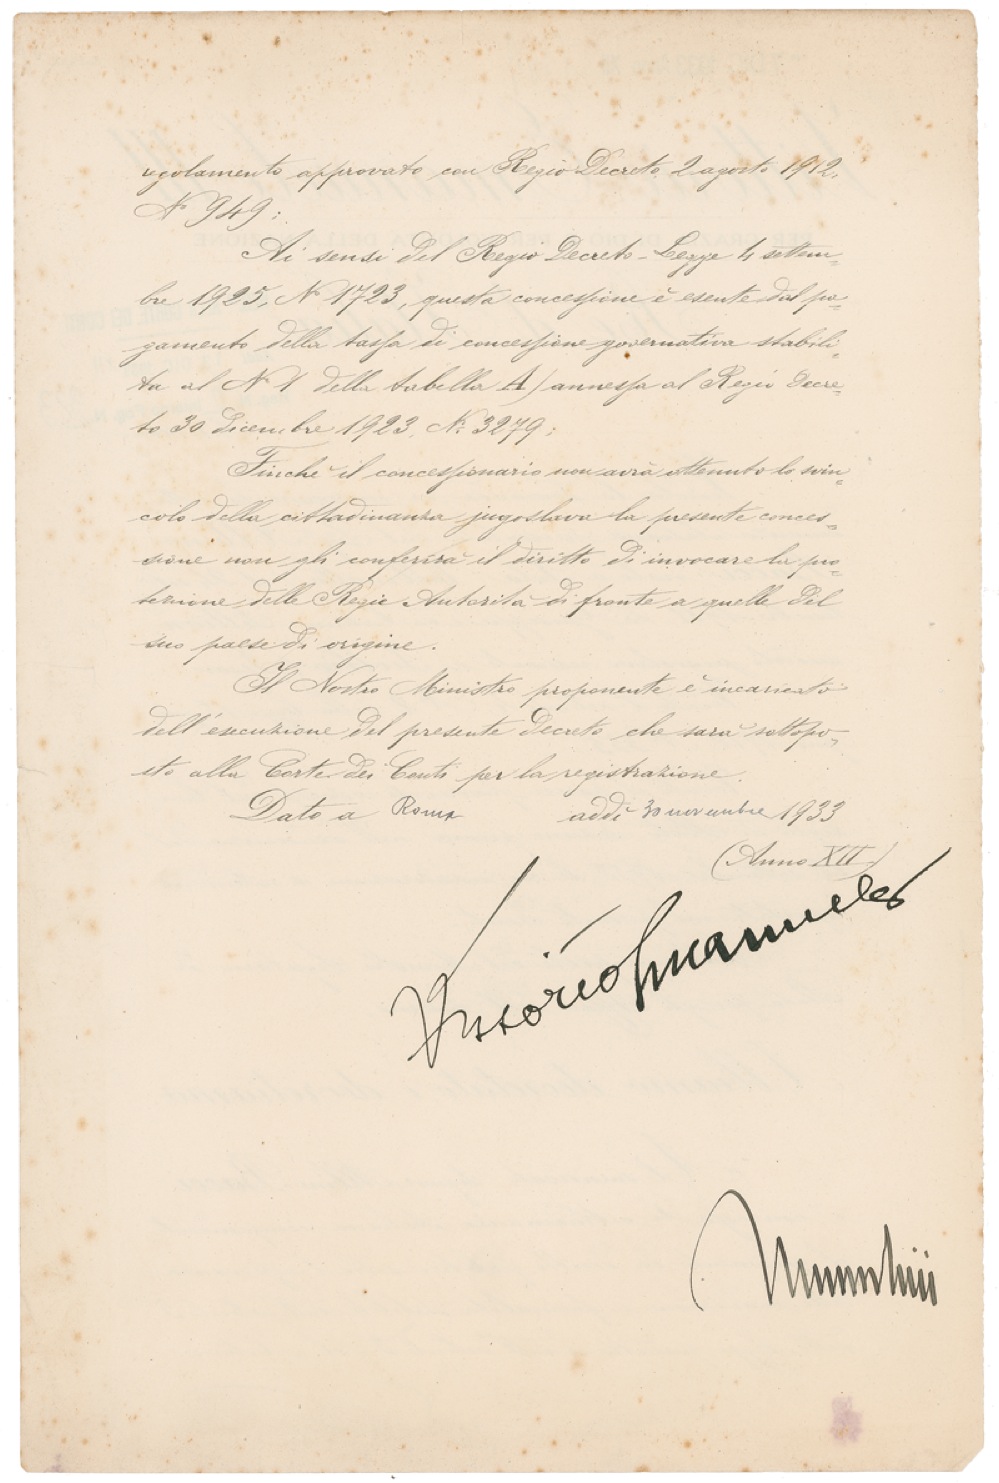 regolamento approvato con Regio Decreto 2 agosto 1912,
N° 949;
Ai sensi del Regio Decreto-Legge 4 settem=
bre 1925, N° 1723, questa concessione è esente dal pa=
gamento della tassa di concessione governativa stabili=
ta al N° 1 della tabella A) annessa al Regio Decre=
to 30 Dicembre 1923, N.° 3279;
Finchè il concessionario non avrà ottenuto lo svin=
colo della cittadinanza jugoslava la presente conces=
sione non gli conferirà il diritto di invocare la pro=
tezione delle Regie Autorità di fronte a quelle del
suo paese di origine.
Il Nostro Ministro proponente è incaricato
dell'esecuzione del presente decreto che sarà sottopo=
sto alla Corte dei Conti per la registrazione.
Dato a Roma addì 30 novembre 1933
(Anno XII)
Vittorio Emanuele
Mussolini